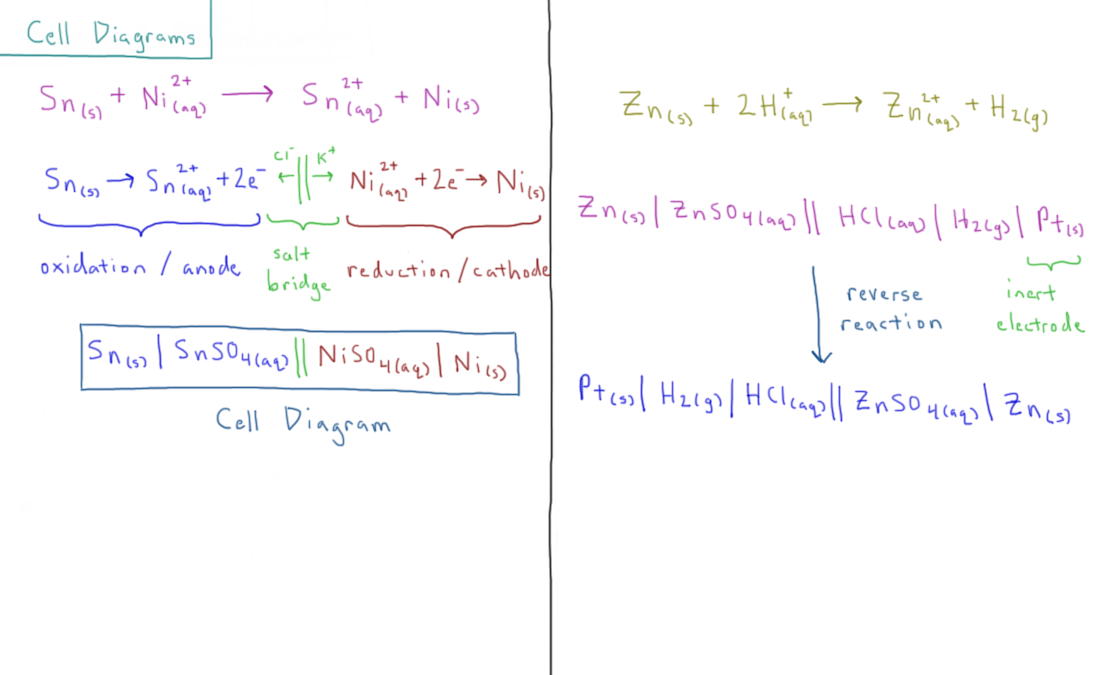 Cell Diagrams
Sn(s) + Ni²⁺(aq) ⟶ Sn²⁺(aq) + Ni(s)
Sn(s) → Sn²⁺(aq) + 2e⁻ Cl⁻ ← || K⁺ → Ni²⁺(aq) + 2e⁻ → Ni(s)
oxidation / anode
salt
bridge
reduction / cathode
Sn(s) | SnSO₄(aq) || NiSO₄(aq) | Ni(s)
Cell Diagram
Zn(s) + 2H⁺(aq) ⟶ Zn²⁺(aq) + H₂(g)
Zn(s) | ZnSO₄(aq) || HCl(aq) | H₂(g) | Pt(s)
inert
electrode
reverse
reaction
Pt(s) | H₂(g) | HCl(aq) || ZnSO₄(aq) | Zn(s)